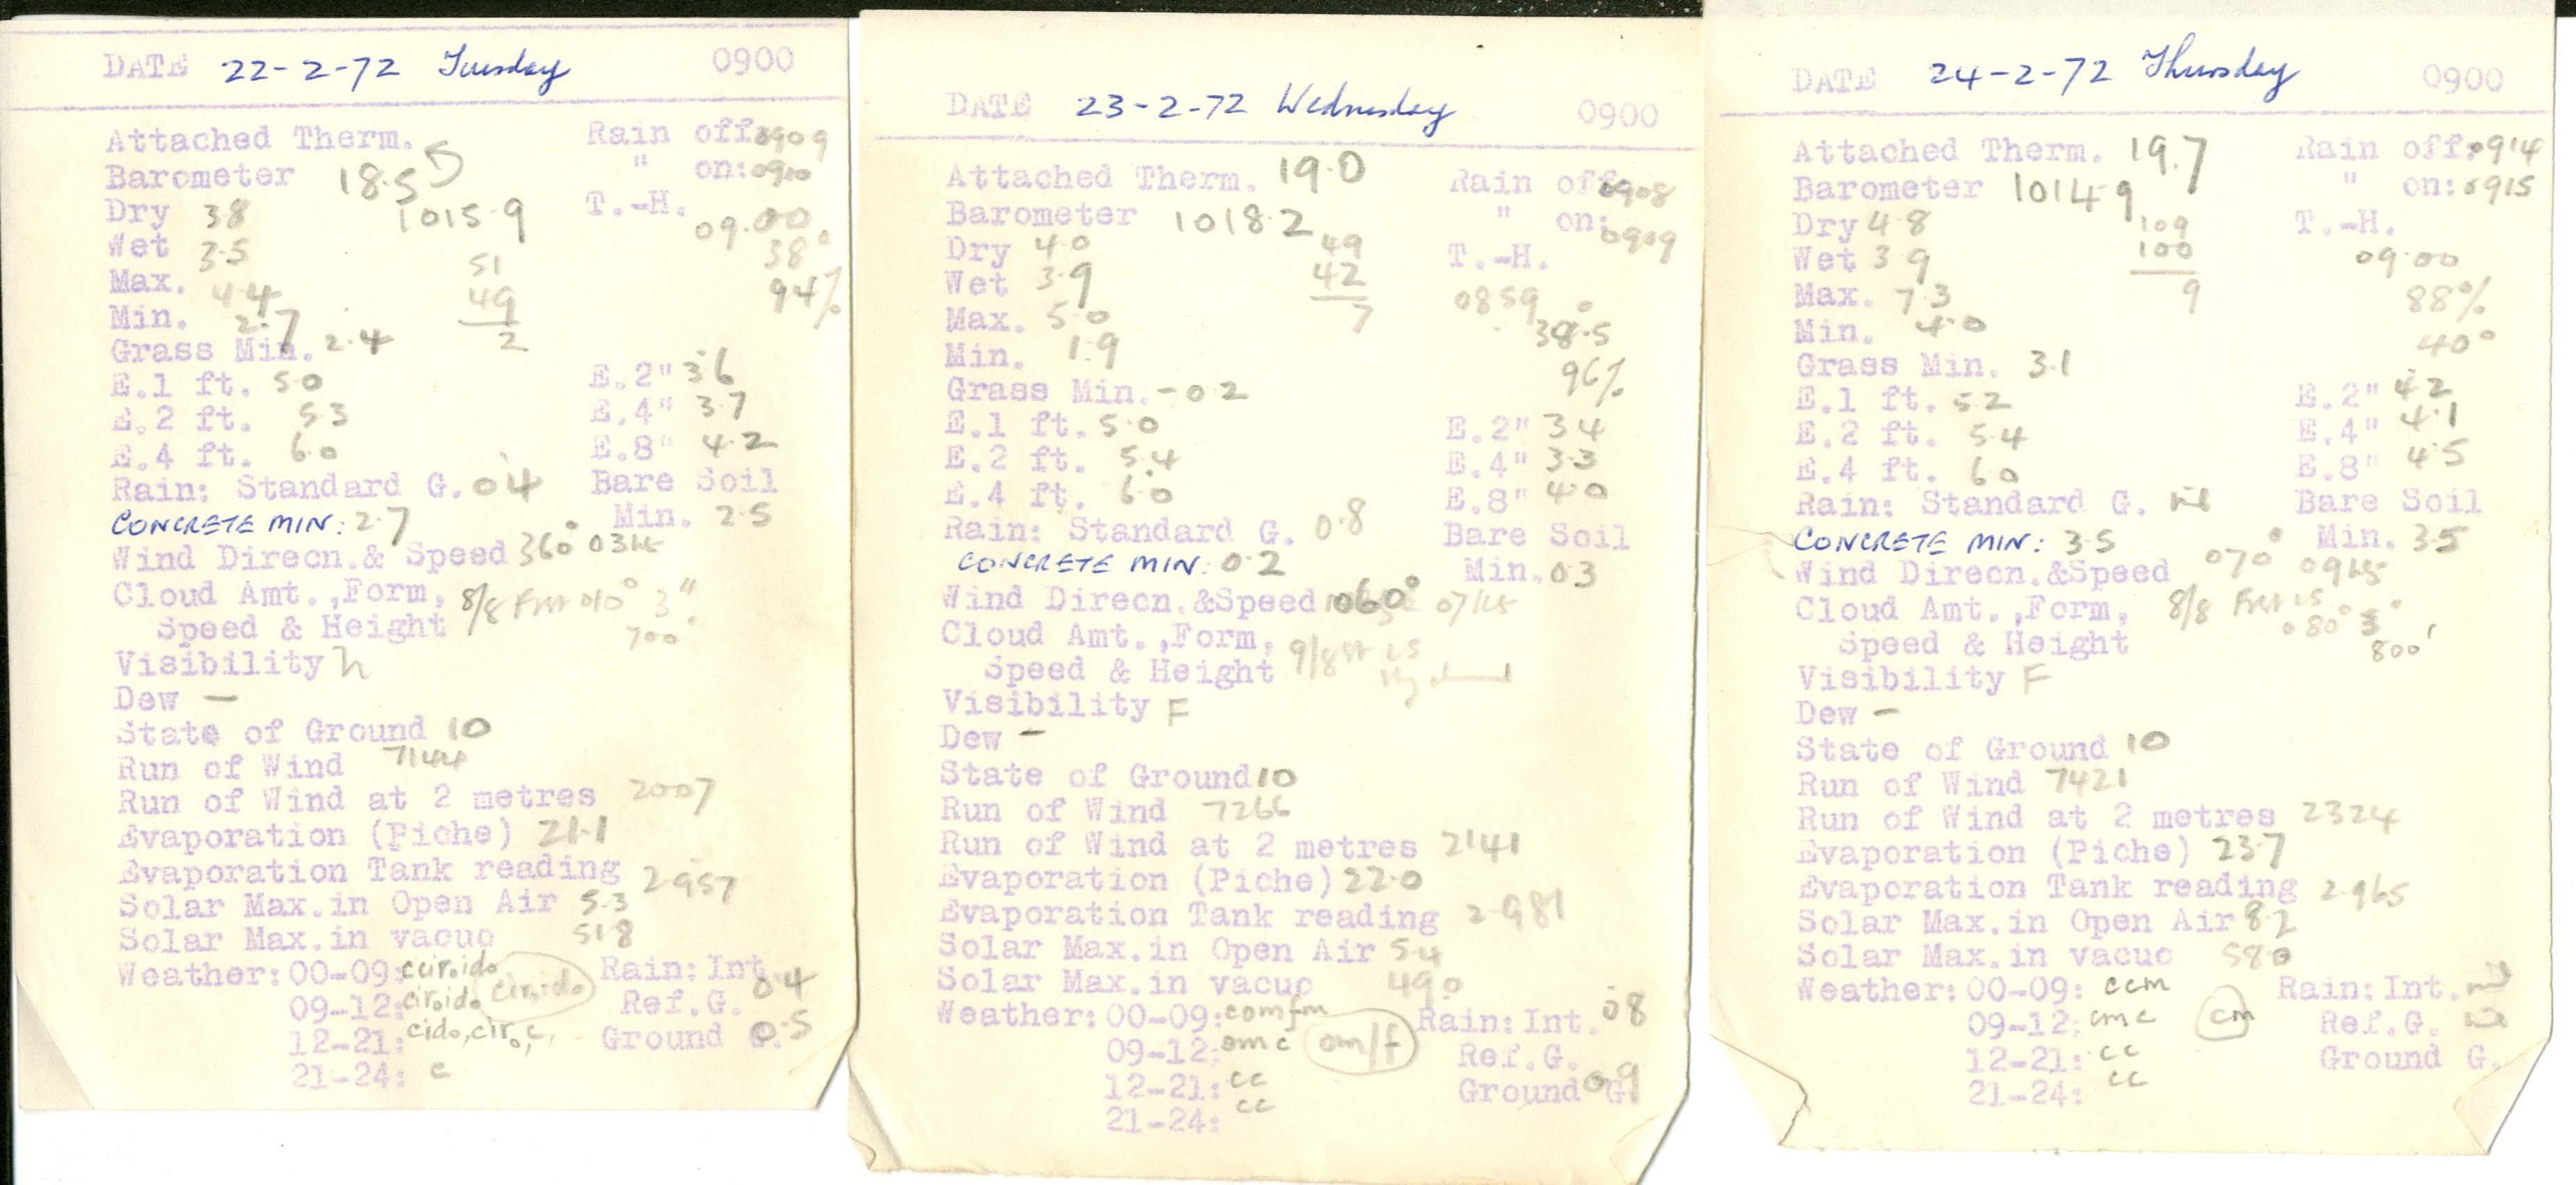 DATE 22-2-72 Tuesday 0900
Attached Therm. Rain off: 0909
Barometer 18.5 " on: 0910
Dry 3.8 1015.9 T.-H. 09.00
Wet 3.5 51 38°
Max. 4.4 49 94%
Min. 2.7 2
Grass Min. 2.4
E.1 ft. 5.0 E.2" 3.6
E.2 ft. 5.3 E.4" 3.7
E.4 ft. 6.0 E.8" 4.2
Rain: Standard G. 0.4 Bare Soil
CONCRETE MIN: 2.7 Min. 2.5
Wind Direcn.& Speed 360° 03kts
Cloud Amt.,Form, 8/8 010° 3"
Speed & Height 700'
Visibility
Dew –
State of Ground 10
Run of Wind 7144
Run of Wind at 2 metres 2007
Evaporation (Piche) 21.1
Evaporation Tank reading 2.957
Solar Max.in Open Air 5.3
Solar Max.in vacuo 51.8
Weather: 00-09: Rain: Int. 0.4
09-12: Ref.G.
12-21: Ground G. 0.5
21-24: c
DATE 23-2-72 Wednesday 0900
Attached Therm. 19.0 Rain off: 0908
Barometer 1018.2 " on: 0909
Dry 4.0 49 T.-H.
Wet 3.9 42 0859
Max. 5.0 7 38.5°
Min. 1.9 96%
Grass Min. -0.2
E.1 ft. 5.0 E.2" 3.4
E.2 ft. 5.4 E.4" 3.3
E.4 ft. 6.0 E.8" 4.0
Rain: Standard G. 0.8 Bare Soil
CONCRETE MIN: 0.2 Min. 0.3
Wind Direcn.&Speed 060° 07kts
Cloud Amt.,Form, 9/8
Speed & Height
Visibility F
Dew –
State of Ground 10
Run of Wind 7266
Run of Wind at 2 metres 2141
Evaporation (Piche) 22.0
Evaporation Tank reading 2.981
Solar Max.in Open Air 5.4
Solar Max.in vacuo 49.0
Weather: 00-09: comfm Rain: Int. 0.8
09-12: omc om/f Ref.G.
12-21: cc Ground G. 0.9
21-24: cc
DATE 24-2-72 Thursday 0900
Attached Therm. 19.7 Rain off: 0914
Barometer 1014.9 " on: 0915
Dry 4.8 109 T.-H.
Wet 3.9 100 09.00
Max. 7.3 9 88%
Min. 4.0 40°
Grass Min. 3.1
E.1 ft. 5.2 E.2" 4.2
E.2 ft. 5.4 E.4" 4.1
E.4 ft. 6.0 E.8" 4.5
Rain: Standard G. nil Bare Soil
CONCRETE MIN: 3.5 Min. 3.5
Wind Direcn.&Speed 070° 09kts
Cloud Amt.,Form, 8/8 080° 3"
Speed & Height 800'
Visibility F
Dew –
State of Ground 10
Run of Wind 7421
Run of Wind at 2 metres 2324
Evaporation (Piche) 23.7
Evaporation Tank reading 2.965
Solar Max.in Open Air 8.2
Solar Max.in vacuo 58.0
Weather: 00-09: ccm Rain: Int. nil
09-12: cmc cm Ref.G. nil
12-21: cc Ground G.
21-24: cc